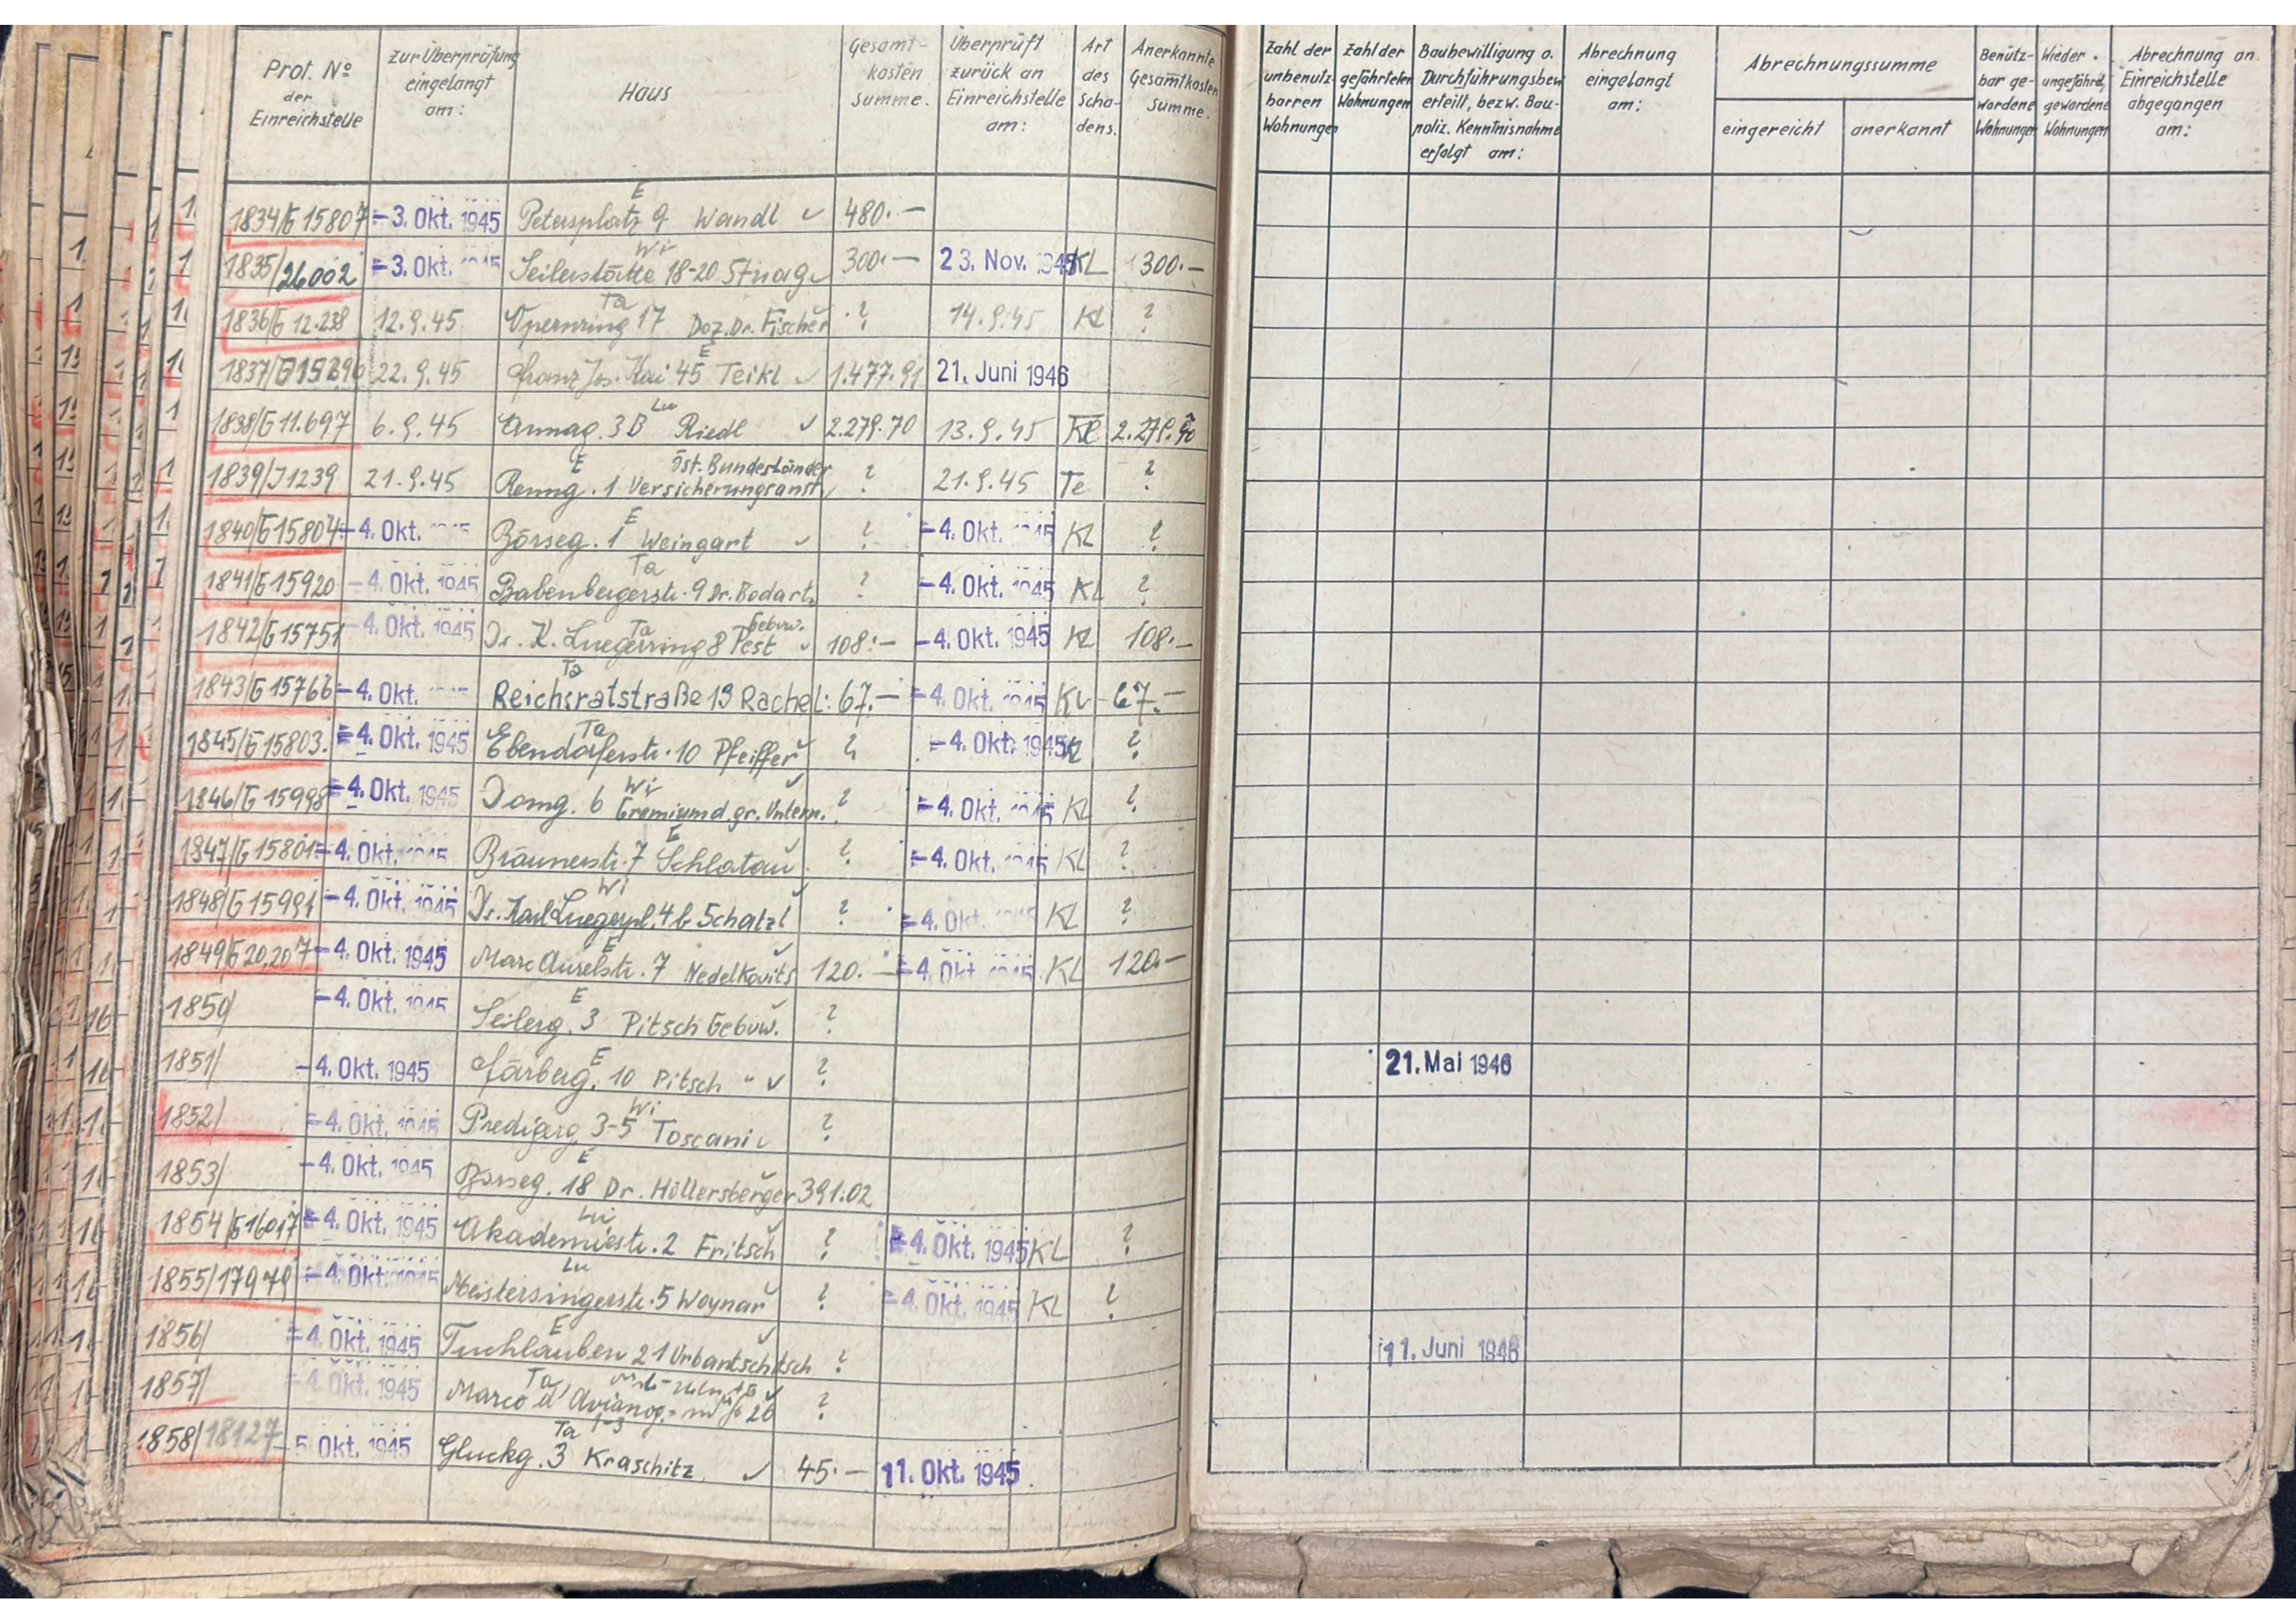 Prot. No der Einreichstelle | Zur Überprüfung eingelangt am: | Haus | Gesamt-kosten Summe. | Überprüft zurück an Einreichstelle am: | Art des Scha-dens. | Anerkannte Gesamtkosten Summe. | Zahl der unbenutz-barren Wohnungen | Zahl der gefährteten Wohnungen | Baubewilligung o. Durchführungsbew. erteilt, bezw. Bau-poliz. Kenntnisnahme erfolgt am: | Abrechnung eingelangt am: | Abrechnungssumme eingereicht | anerkannt | Benütz-bar ge-wordene Wohnungen | Wieder ungefährd. gewordene Wohnungen | Abrechnung an Einreichstelle abgegangen am:
1834/G 15807 | -3. Okt. 1945 | E Petersplatz 9 Wandl ✓ | 480.—
1835/26002 | -3. Okt. 1945 | Wi Seilerstätte 18-20 Stuag ✓ | 300.— | 23. Nov. 1945 | KL | 300.—
1836/G 12.238 | 12.9.45 | Ta Opernring 17 Doz. Dr. Fischer | ? | 14.9.45 | Kl | ?
1837/G 15296 | 22.9.45 | E Franz Jos. Kai 45 Teikl ✓ | 1.477.91 | 21. Juni 1946
1838/G 11.697 | 6.9.45 | Lu Annag. 3B Riedl ✓ | 2.279.70 | 13.9.45 | Kl | 2.279.70
1839/J 1239 | 21.9.45 | E Renng. 1 Öst. Bundesländer Versicherungsanst. ✓ | ? | 21.9.45 | Te | ?
1840/G 15804 | -4. Okt. 1945 | E Börseg. 1 Weingart ✓ | ? | -4. Okt. 1945 | KL | ?
1841/G 15920 | -4. Okt. 1945 | Ta Babenbergerstr. 9 Dr. Bodart | ? | -4. Okt. 1945 | KL | ?
1842/G 15751 | -4. Okt. 1945 | Ta Dr. K. Luegerring 8 Pest Gebvw. ✓ | 108.— | -4. Okt. 1945 | KL | 108.—
1843/G 15766 | -4. Okt. | Ta Reichsratstraße 19 Rachel | 67.— | -4. Okt. 1945 | KL | 67.—
1845/G 15803. | -4. Okt. 1945 | Ta Ebendorferstr. 10 Pfeiffer ✓ | ? | -4. Okt. 1945 | KL | ?
1846/G 15998 | -4. Okt. 1945 | Wi Domg. 6 Gremium d. gr. Untern. ✓ | ? | -4. Okt. 1945 | KL | ?
1847/G 15801 | -4. Okt. 1945 | E Bräunerstr. 7 Schlatau | ? | -4. Okt. 1945 | KL | ?
1848/G 15991 | -4. Okt. 1945 | Wi Dr. Karl Luegerpl. 4b Schatzl ✓ | ? | -4. Okt. 1945 | KL | ?
1849/G 20.207 | -4. Okt. 1945 | E Marc Aurelstr. 7 Nedelkovits ✓ | 120.— | -4. Okt. 1945 | KL | 120.—
1850/ | -4. Okt. 1945 | E Seilerg. 3 Pitsch Gebvw. ✓ | ?
1851/ | -4. Okt. 1945 | E Färberg. 10 Pitsch " ✓ | ? | 21. Mai 1946
1852/ | -4. Okt. 1945 | Wi Predigerg. 3-5 Toscani ✓ | ?
1853/ | -4. Okt. 1945 | E Börseg. 18 Dr. Höllersberger ✓ | 391.02
1854/G 16017 | -4. Okt. 1945 | Lu Akademiestr. 2 Fritsch ✓ | ? | -4. Okt. 1945 | KL | ?
1855/17979 | -4. Okt. 1945 | Lu Meistersingerstr. 5 Woynar ✓ | ? | -4. Okt. 1945 | KL | ?
1856/ | -4. Okt. 1945 | E Tuchlauben 21 Urbantschitsch ✓ | ? | 11. Juni 1946
1857/ | -4. Okt. 1945 | Ta Marco d'Avianog. 1-3 ✓ | ?
1858/18127 | 5. Okt. 1945 | Ta Gluckg. 3 Kraschitz ✓ | 45.— | 11. Okt. 1945